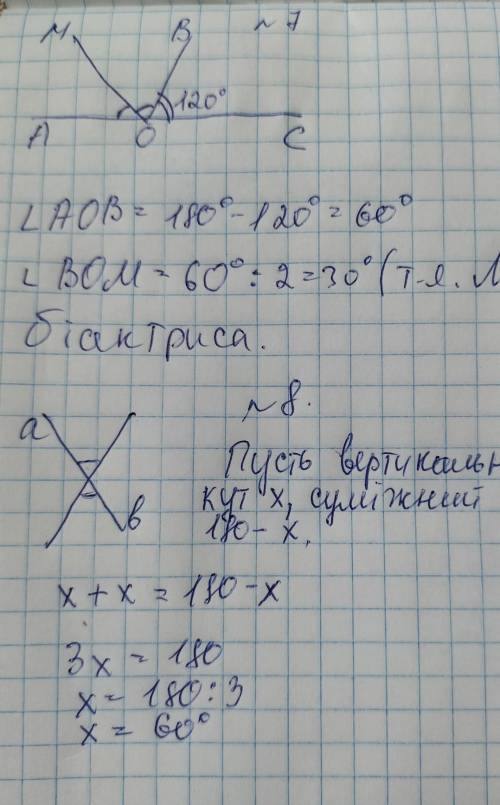 №7
М В
120°
А О С
∠AOB = 180° - 120° = 60°
∠BOM = 60° : 2 = 30° (т-я. М
біактриса.
№8.
а
в
Пусть вертикальн
кут x, суміжний
180 - x.
x + x = 180 - x
3x = 180
x = 180 : 3
x = 60°